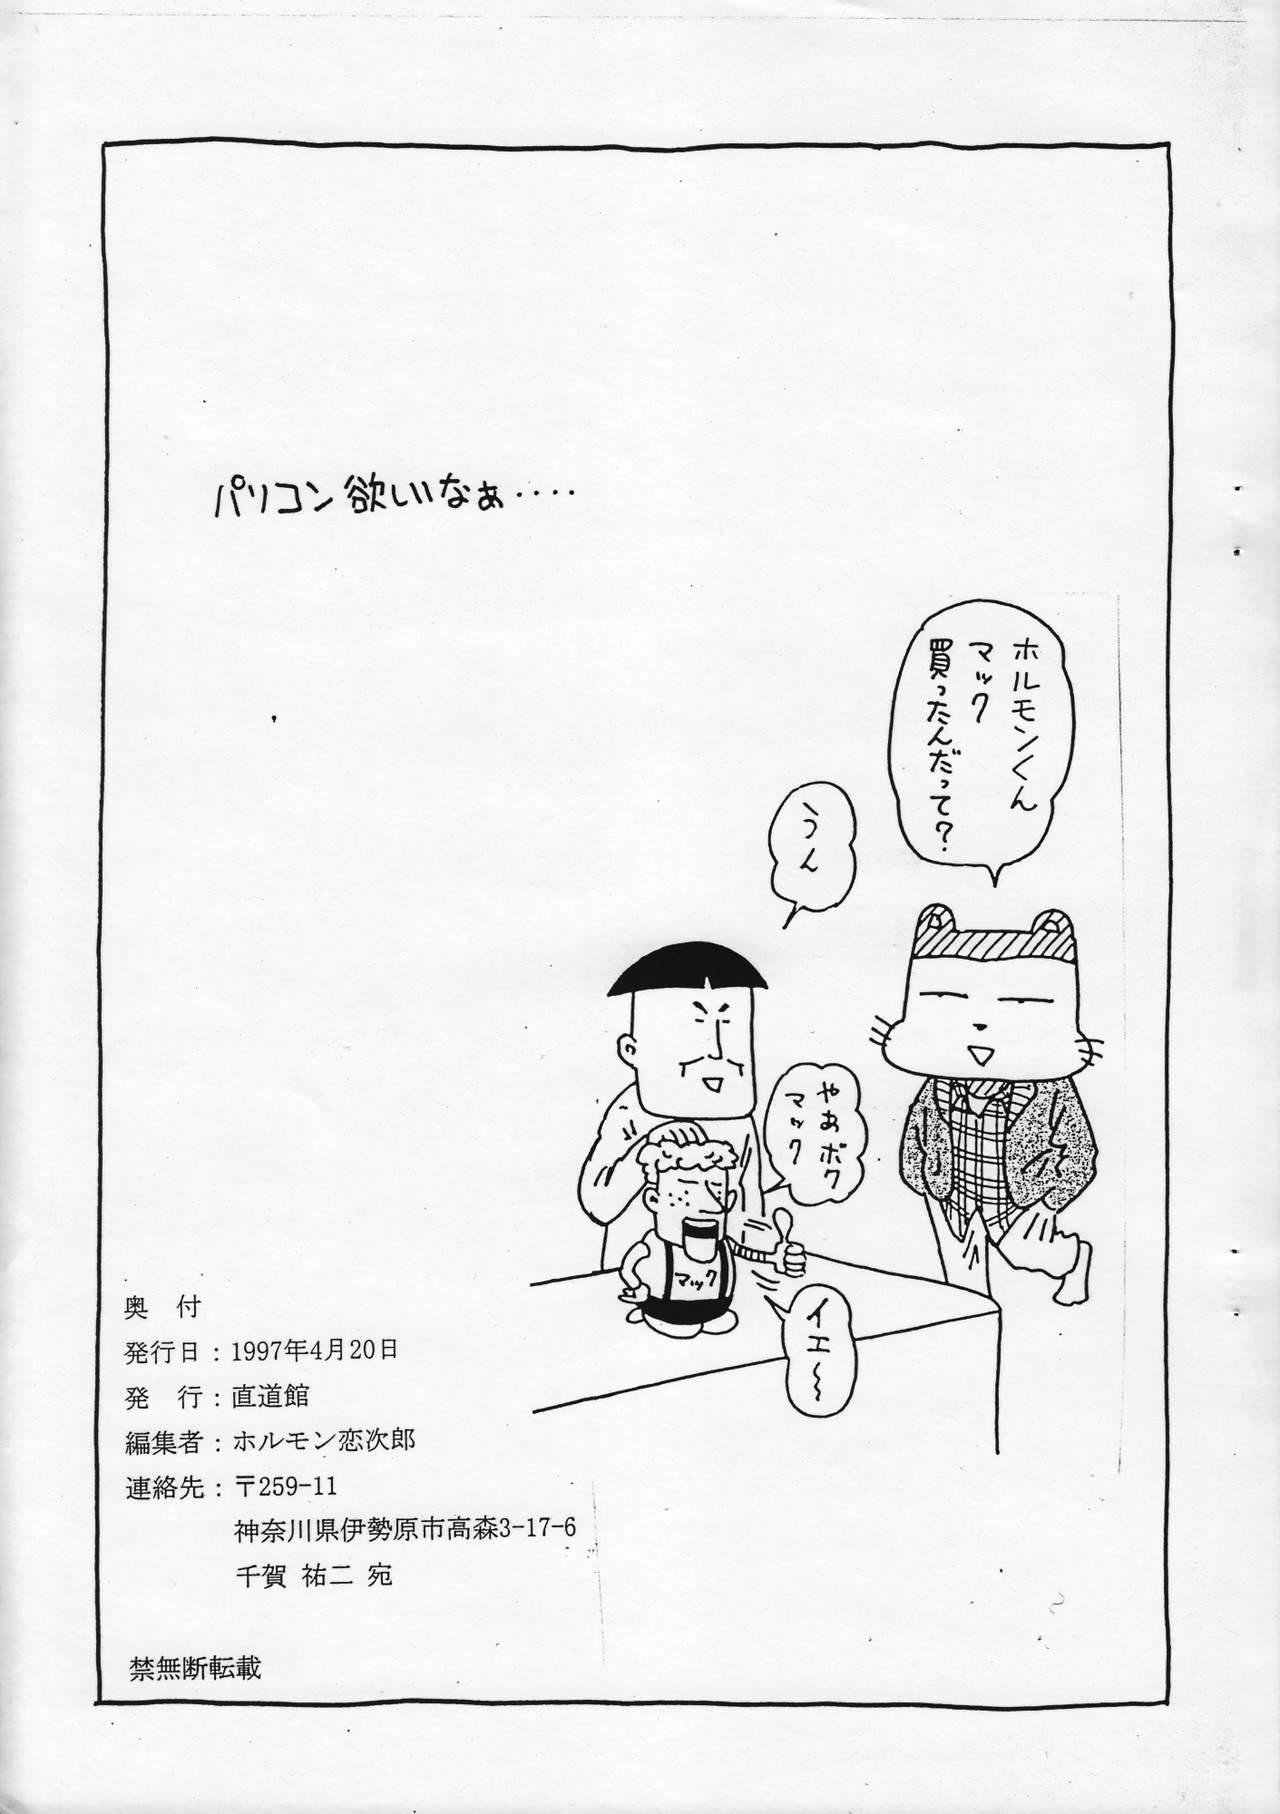 パソコン欲しいなぁ‥‥
ホルモンくん
マック
買ったんだって?
うん
やあボク
マック
マック
イエ〜
奥　付
発行日：1997年4月20日
発　行：直道館
編集者：ホルモン恋次郎
連絡先：〒259-11
神奈川県伊勢原市高森3-17-6
千賀 祐二 宛
禁無断転載